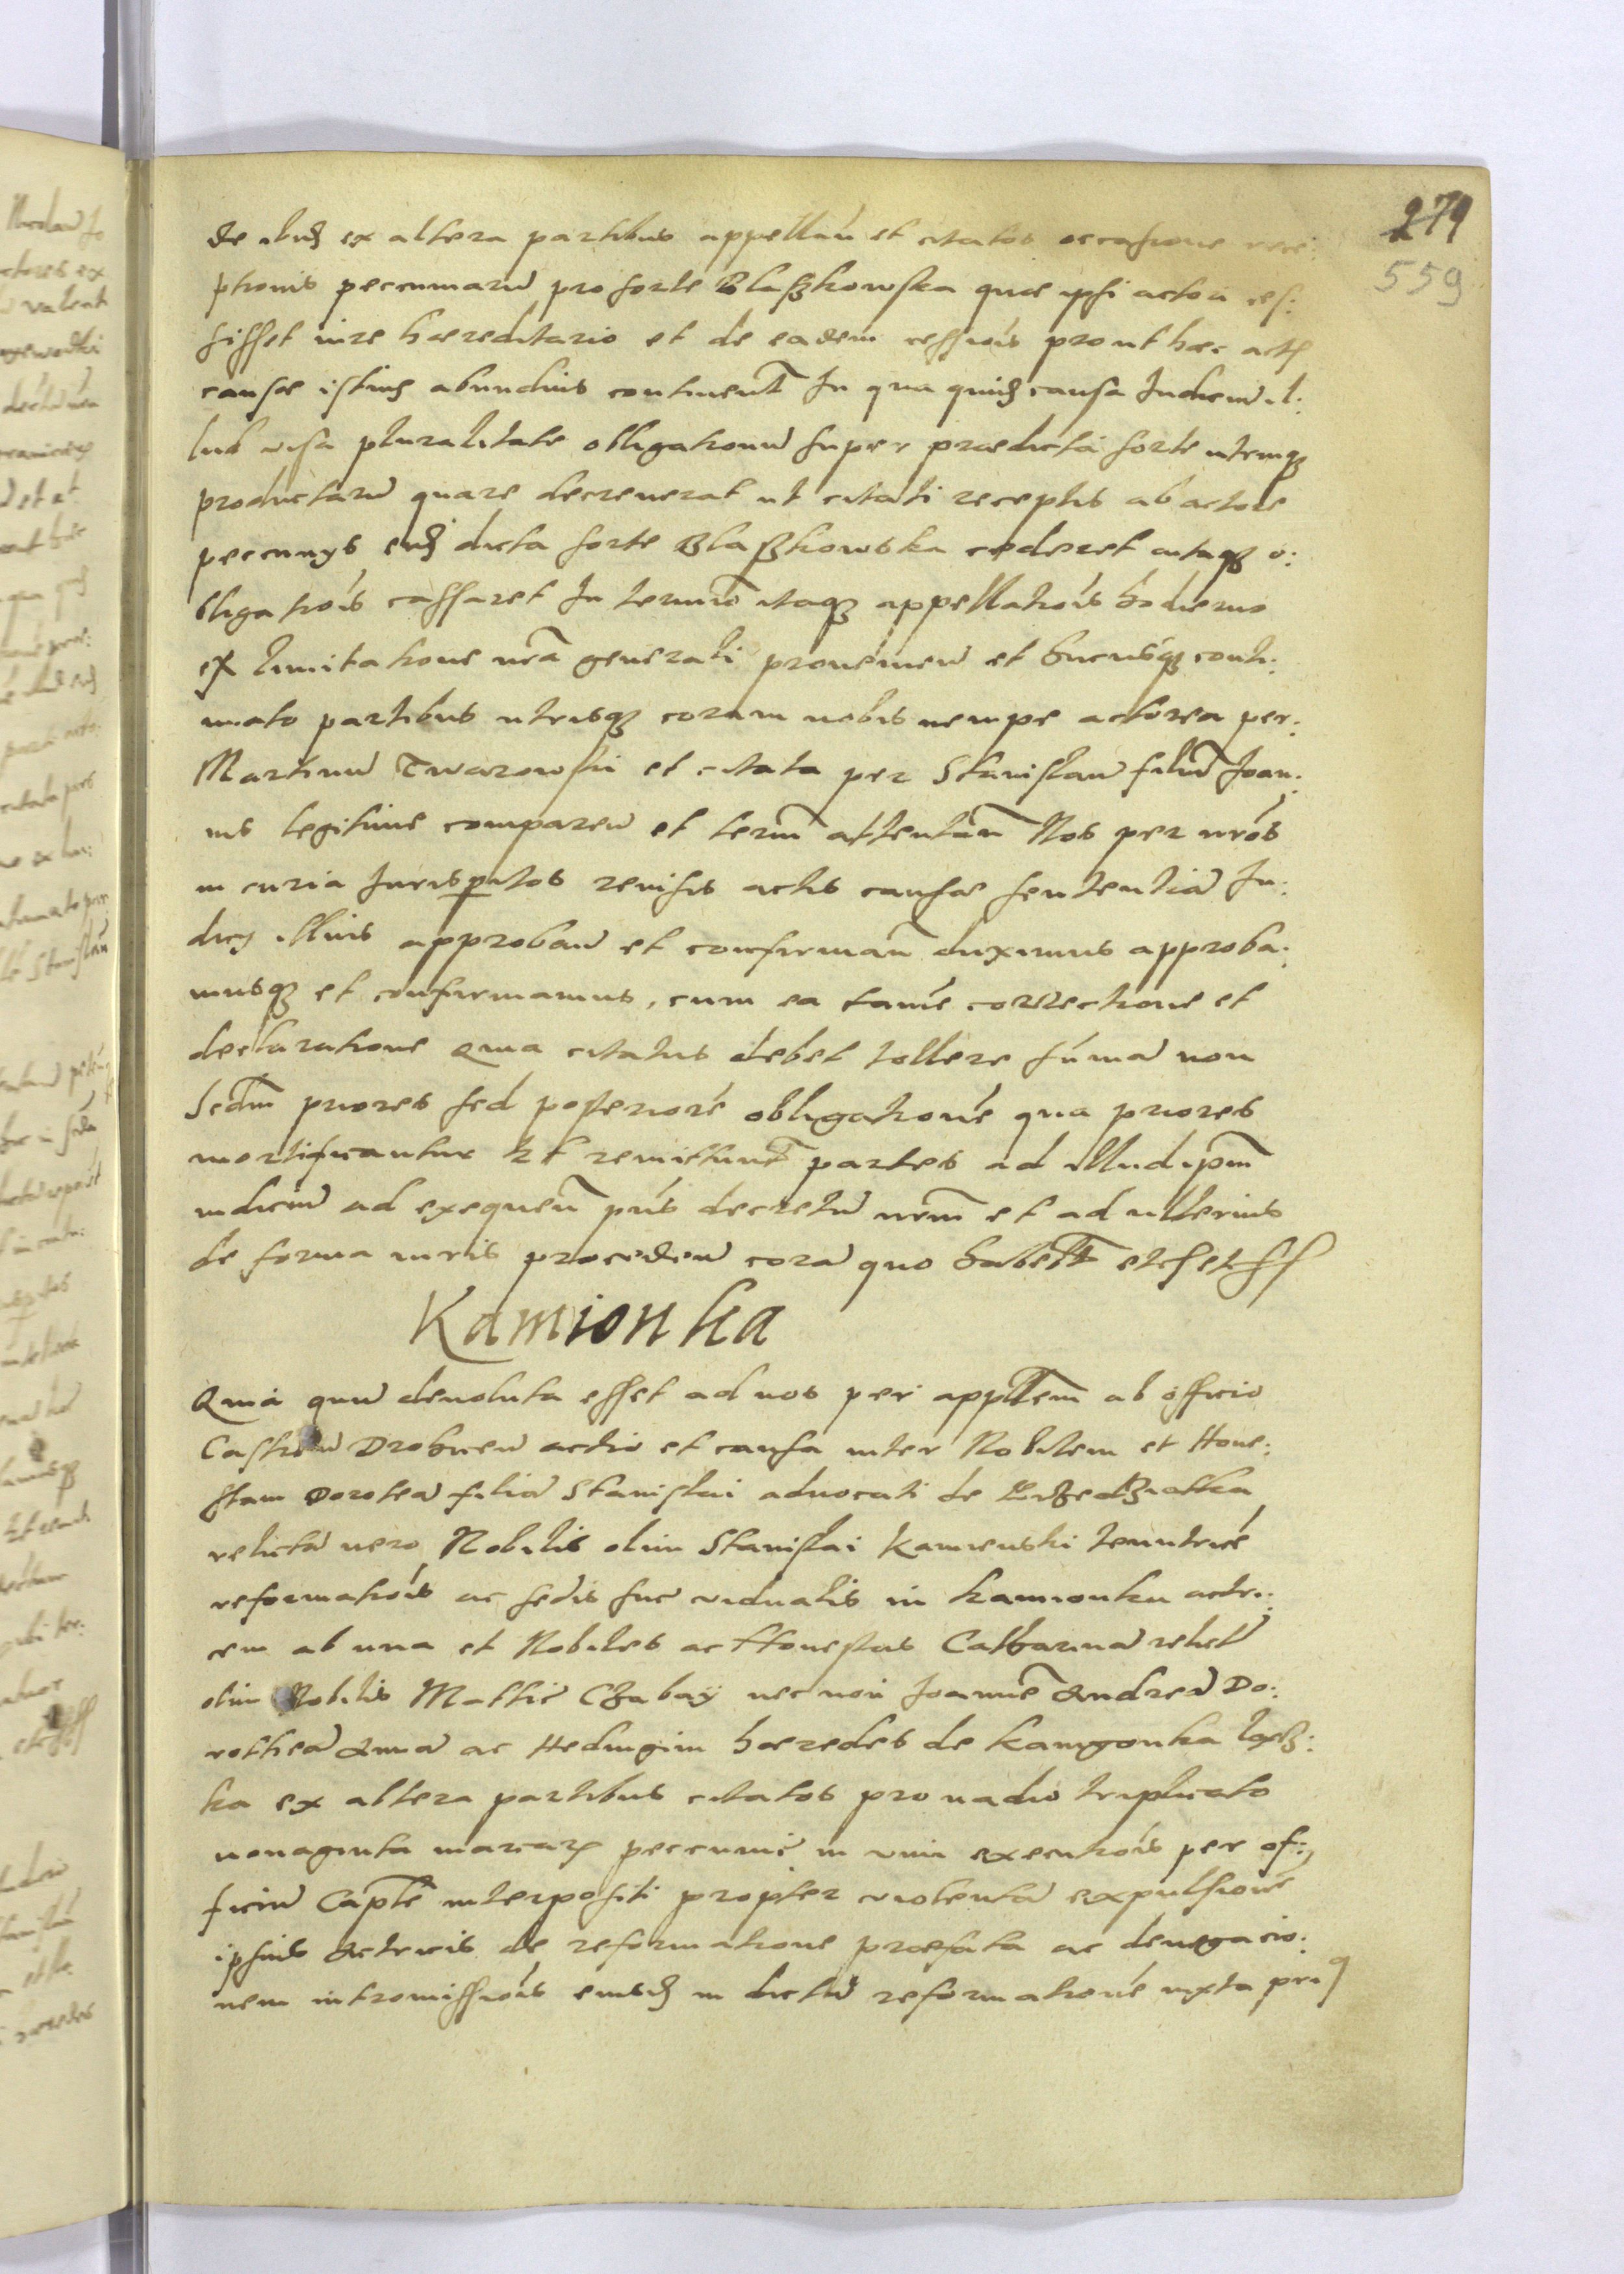 279
559
de ibidẽ ex altera partibus appellañ et citatos occasione rece:
ptionis pecuniarũ pro sorte Blaszkowska quæ ipsi actori ces:
sisset iure hæreditario et de eadem cessiõis prout hæc acta
causæ istius abundius continent̃ In qua quidẽ causa Iudiciũ il:
lud visa pluralitate obligationũ super prædicta sorte utrinq3
productarũ quare decreuerat ut citati receptis ab actore
pecunijs eidẽ dicta sorte Blaszkowska cederet citaq3 o:
bligatiõis cassaret In termiõ itaq3 appellatiõis hodierno
ex limitatione nr̃a generali proueniẽ et hucusq3 conti:
nuato partibus utrisq3 coram nobis nempe actorea per:
Martinũ Twarowski et citata per Stanislaũ filiũ Joan:
nis legitime compareñ et termĩ attentañ Nos per nr̃os
in curia Iurisp̱itos reuisis actis causæ sententiã Iu:
dicÿ illius approbañ et confirmañ duximus approba:
musq3 et confirmamus, cum ea tamẽ correctione et
declaratione Quia citatus debet tollere sũmã non
Scdm̃ priores sed posteriorẽ obligationẽ qua priores
mortificantur Et remittunt̃ partes ad illud ip̃m
iudiciũ ad exequeñ pñs decretũ nr̃m et ad ulterius
de forma iuris procedeñ corã quo habebt̃
Kamionka
Quia quũ deuoluta esset ad nos per app̃ll̃em ab officio
Castreñ Drohiceñ actio et causa inter Nobilem et Hone:
stam Dorotheã filiã Stanislai aduocati de
relictã uero Nobilis olim Stanislai Kamienski tenutricẽ
reformatiõis ac sedis suæ vidualis in Kamionka actri:
cem ab una et Nobiles ac Honestas Catharinã relictã
olim Nobilis Mathiæ Czabaÿ nec non Joannẽ Andreã Do:
rotheã Annã ac Hedvigim hæredes de Kamyonka
ka ex altera partibus citatos pro uadio triplicato
nonaginta marcarũ pecuniæ in vim executiõis per of:
ficiũ Cap̃le interpositi propter violentã expulsionẽ
ipsius Actricis de reformatione præfata ac denegacio:
nem intromissiõis eiusdẽ in dictã reformationẽ iuxta pri